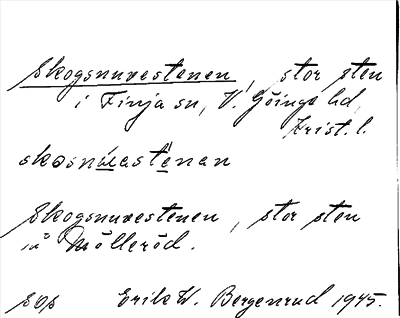 Skogsnuvestenen, stor sten
i Finja sn, V. Göinge hd,
Krist. l.
skogsnuvestenen, stor sten
på Mölleröd.
sps Erik W. Bergenrud 1945.